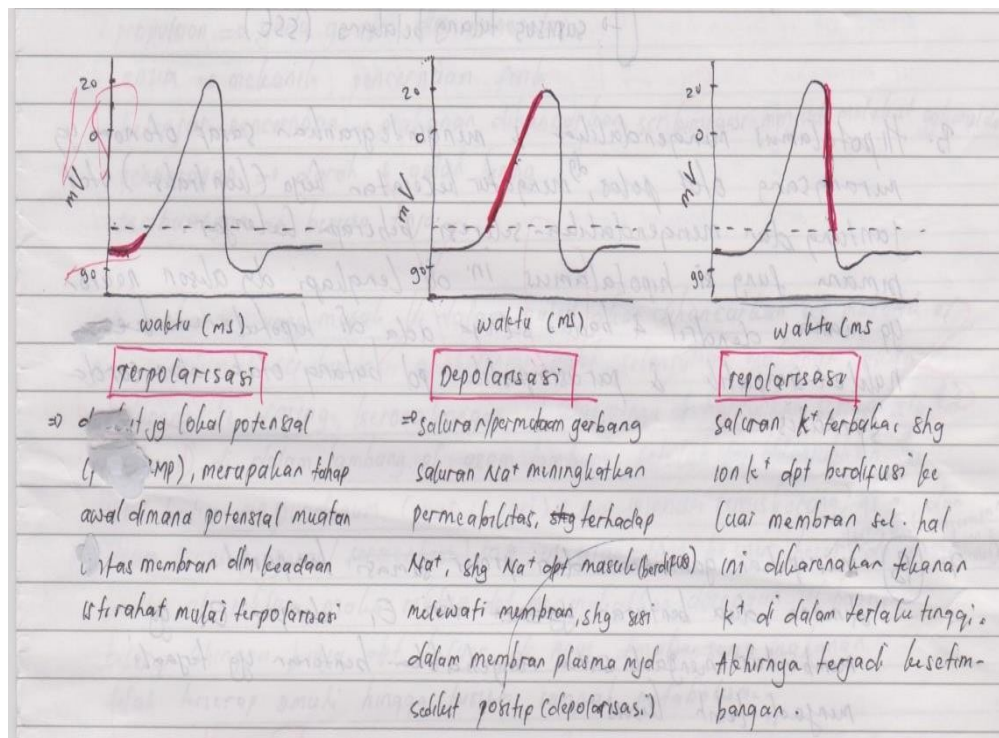 20
0
mV
90
waktu (ms)
Terpolarisasi
⇒ yg lokal potensial
MP), merupakan tahap
awal dimana potensial muatan
lintas membran dlm keadaan
istirahat mulai terpolarisasi
20
0
mV
90
waktu (ms)
Depolarisasi
⇒ saluran/permukaan gerbang
saluran Na⁺ meningkatkan
permeabilitas, terhadap
Na⁺, shg Na⁺ dpt masuk (berdifusi)
melewati membran, shg sisi
dalam membran plasma mjd
sedikit positip (depolarisasi)
20
0
mV
90
waktu (ms
repolarisasi
saluran K⁺ terbuka, shg
ion K⁺ dpt berdifusi ke
luar membran sel. hal
ini dikarenakan tekanan
K⁺ di dalam terlalu tinggi.
Akhirnya terjadi kesetim-
bangan.